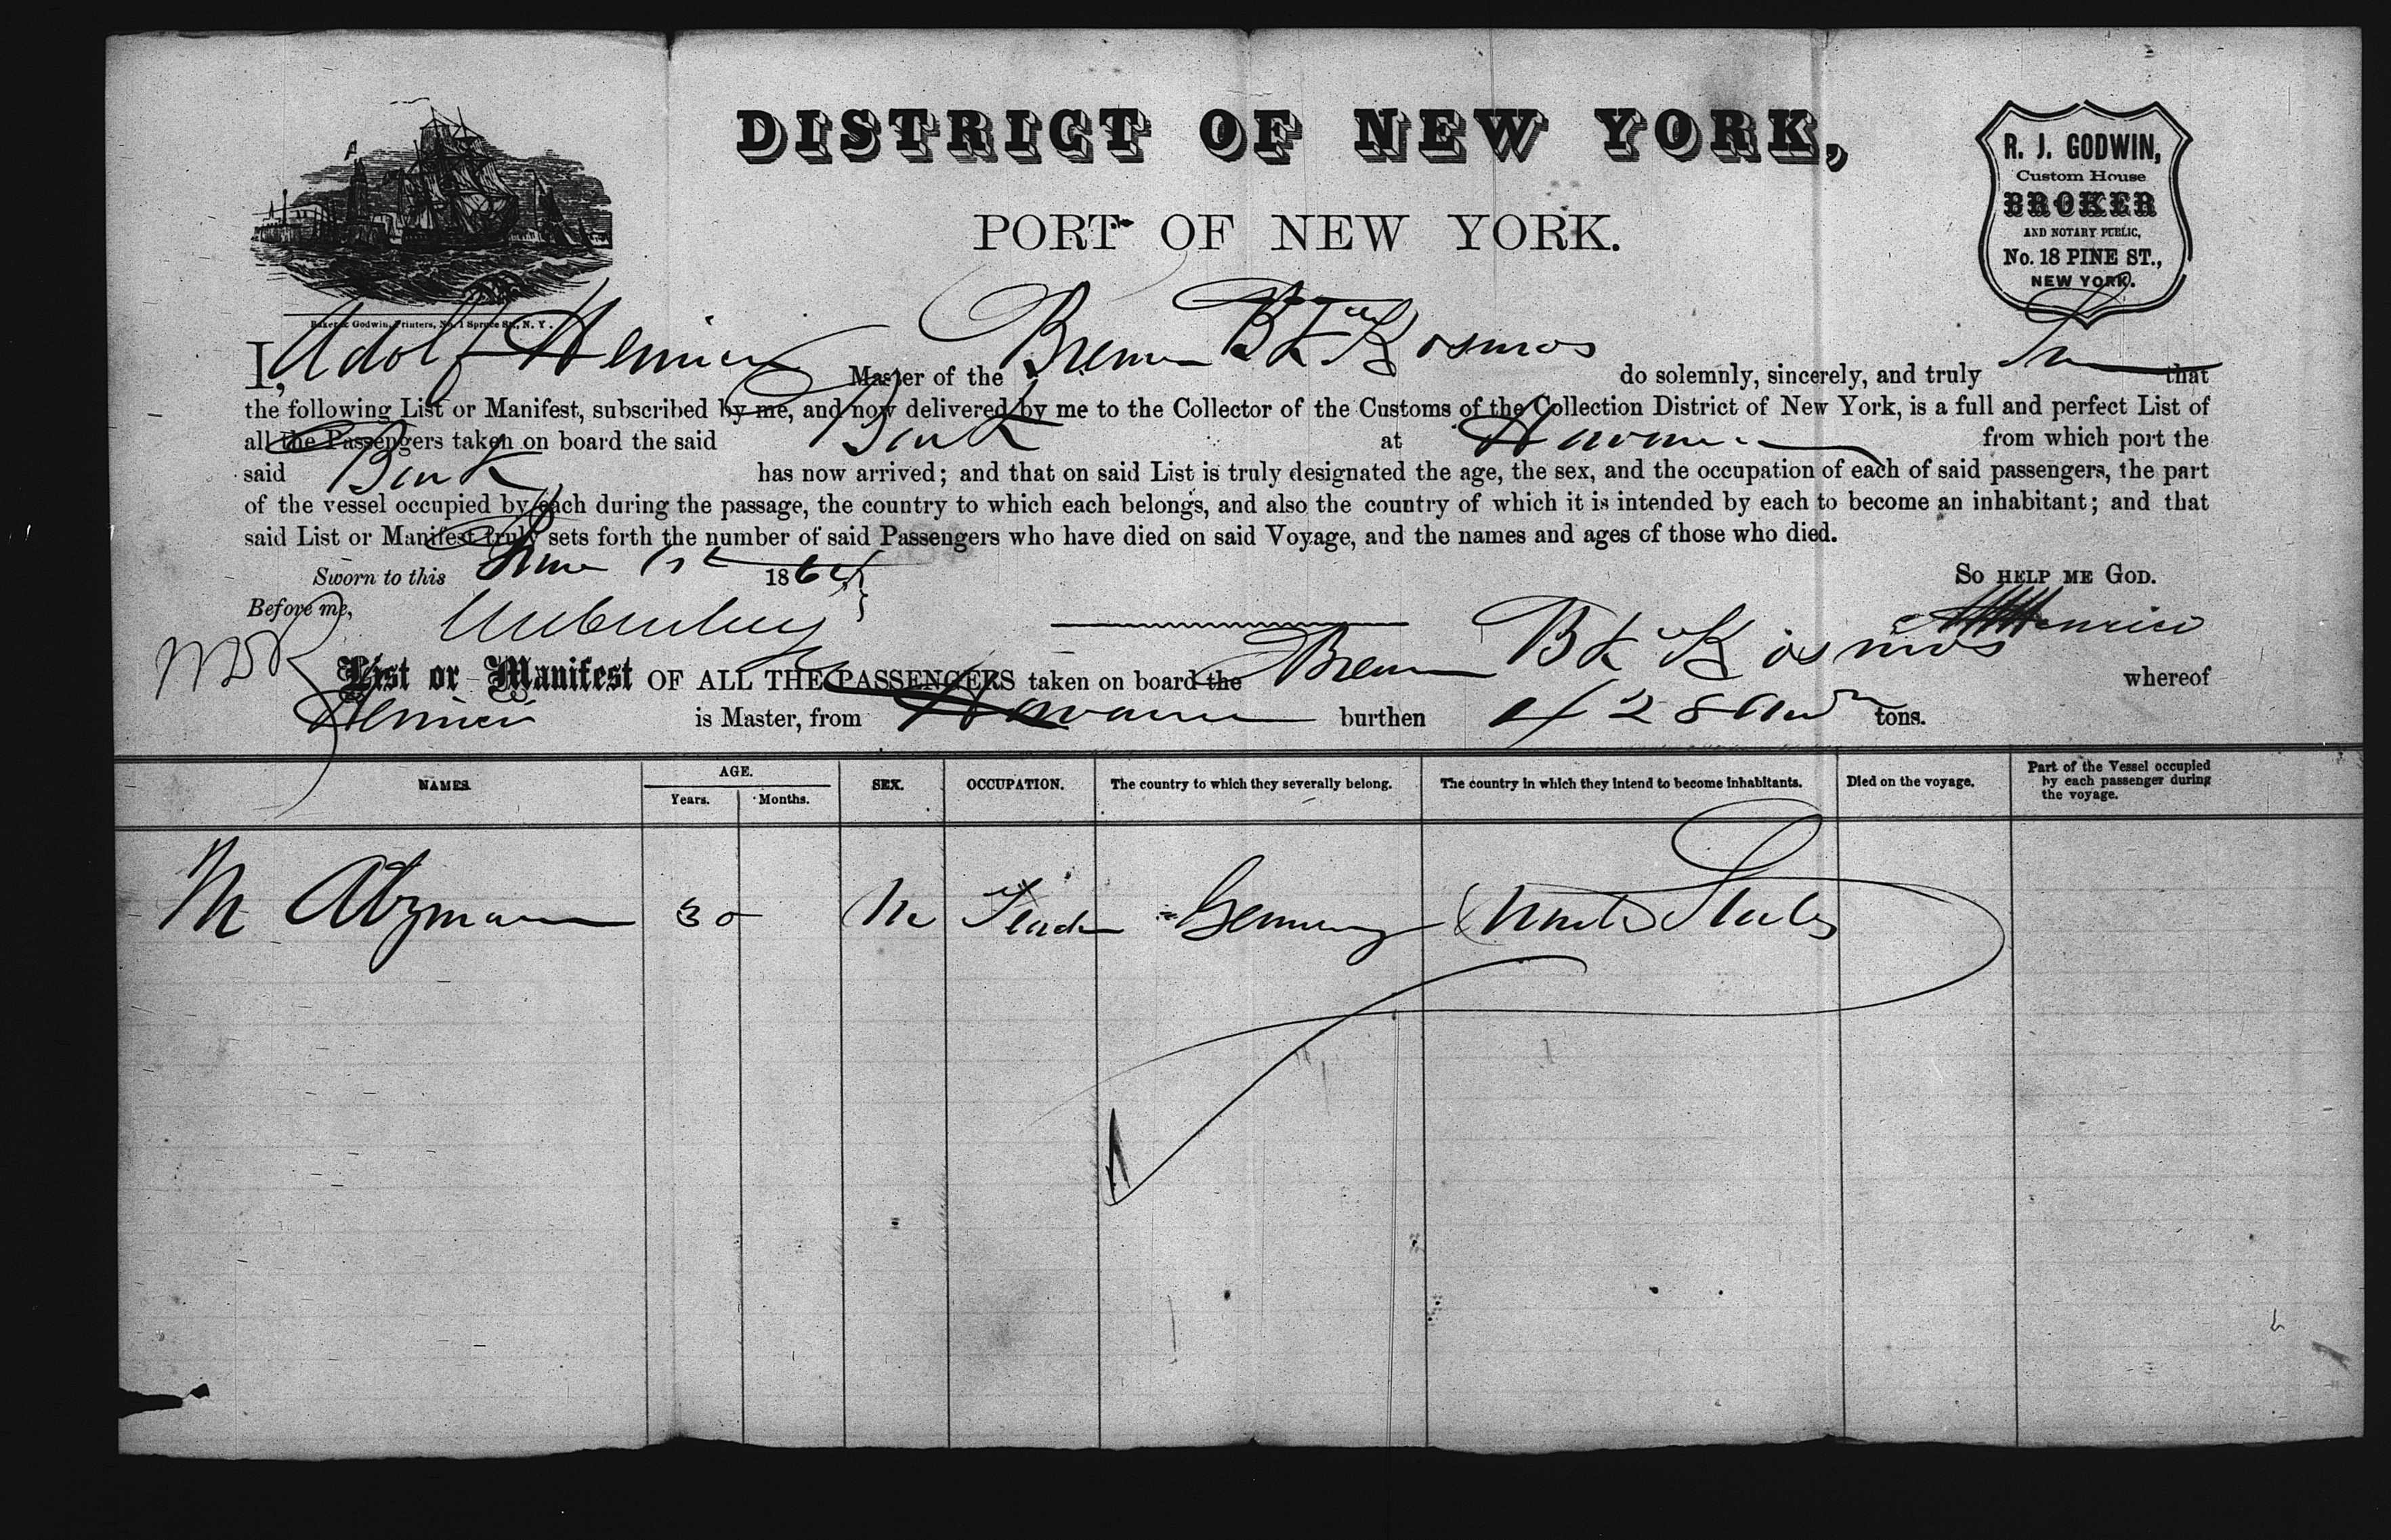 DISTRICT OF NEW YORK,
PORT OF NEW YORK.
R. J. GODWIN,
Custom House
BROKER
AND NOTARY PUBLIC,
No. 18 PINE ST.,
NEW YORK.
Baker & Godwin, Printers, No. 1 Spruce St., N. Y.
I, Adolf Henrici Master of the Bremen Bk Kosmos do solemnly, sincerely, and truly that
the following List or Manifest, subscribed by me, and now delivered by me to the Collector of the Customs of the Collection District of New York, is a full and perfect List of
all the Passengers taken on board the said Bark at Havana from which port the
said Bark has now arrived; and that on said List is truly designated the age, the sex, and the occupation of each of said passengers, the part
of the vessel occupied by each during the passage, the country to which each belongs, and also the country of which it is intended by each to become an inhabitant; and that
said List or Manifest truly sets forth the number of said Passengers who have died on said Voyage, and the names and ages of those who died.
Sworn to this June 1st 1864 So HELP ME GOD.
Before me, Henrici
List or Manifest OF ALL THE PASSENGERS taken on board the Bremen Bk Kosmos whereof
Henrici is Master, from Havana burthen 428 tons.
NAMES. AGE. SEX. OCCUPATION. The country to which they severally belong. The country in which they intend to become inhabitants. Died on the voyage. Part of the Vessel occupied by each passenger during the voyage.
Years. Months.
M Atzmann 30 M Germany United States